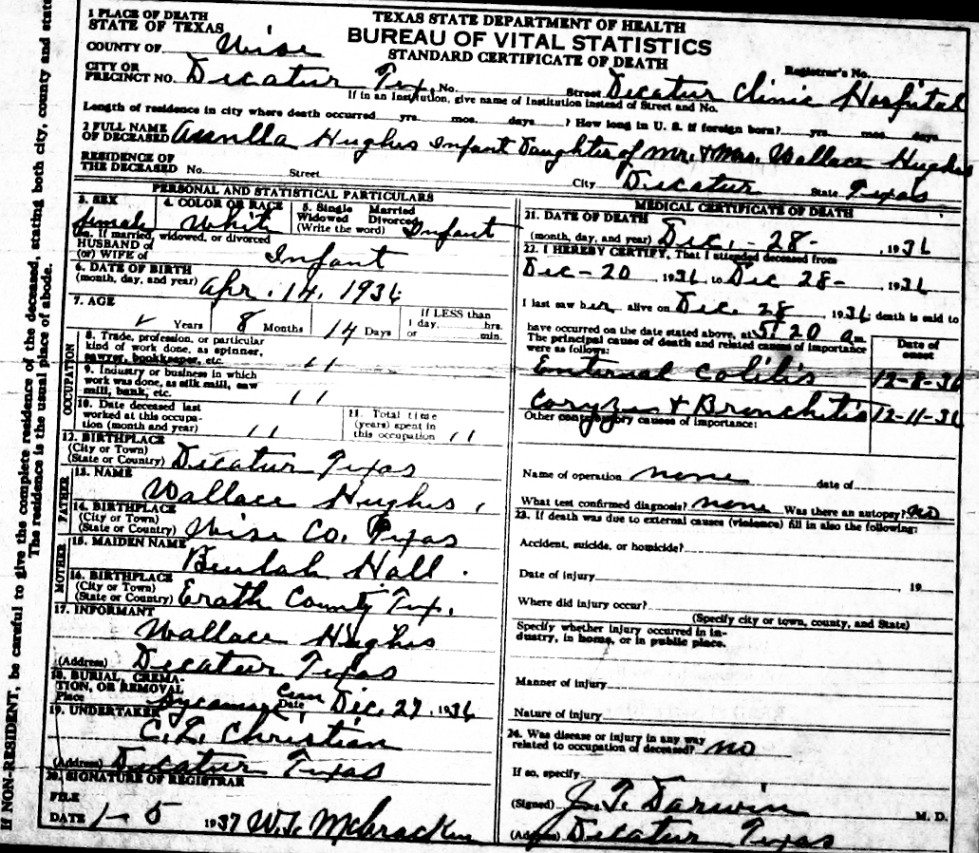 If NON-RESIDENT, be careful to give the complete residence of the deceased, stating both city, county and state.
The residence is the usual place of abode.
TEXAS STATE DEPARTMENT OF HEALTH
BUREAU OF VITAL STATISTICS
STANDARD CERTIFICATE OF DEATH
1 PLACE OF DEATH
STATE OF TEXAS
COUNTY OF Wise
Registrar's No.
CITY OR PRECINCT NO. Decatur Tex. No. Street Decatur Clinic Hospital
If in an Institution, give name of Institution instead of Street and No.
Length of residence in city where death occurred yrs. mos. days ? How long in U. S. if foreign born? yrs. mos. days
2 FULL NAME OF DECEASED Hughes Infant Daughter of Mr. & Mrs. Wallace Hughes
RESIDENCE OF THE DECEASED No. Street City Decatur State Texas
PERSONAL AND STATISTICAL PARTICULARS
3. SEX female
4. COLOR OR RACE White
5. Single Married Widowed Divorced (Write the word) Infant
5a. If married, widowed, or divorced
HUSBAND of (or) WIFE of Infant
6. DATE OF BIRTH (month, day, and year) Apr. 14, 1936
7. AGE Years 8 Months 14 Days If LESS than 1 day, hrs. or min.
OCCUPATION
8. Trade, profession, or particular kind of work done, as spinner, sawyer, bookkeeper, etc. " 
9. Industry or business in which work was done, as silk mill, saw mill, bank, etc. "
10. Date deceased last worked at this occupation (month and year) "
11. Total time (years) spent in this occupation "
12. BIRTHPLACE (City or Town) (State or Country) Decatur Texas
FATHER
13. NAME Wallace Hughes
14. BIRTHPLACE (City or Town) (State or Country) Wise Co. Texas
MOTHER
15. MAIDEN NAME Beulah Hall
16. BIRTHPLACE (City or Town) (State or Country) Erath County Tex.
17. INFORMANT Wallace Hughes
(Address) Decatur Texas
18. BURIAL, CREMATION, OR REMOVAL
Place Sycamore Cem Date Dec. 29, 1936
19. UNDERTAKER C. L. Christian
(Address) Decatur Texas
20. SIGNATURE OF REGISTRAR
FILE DATE 1-5 1937 W. T. McCracken
MEDICAL CERTIFICATE OF DEATH
21. DATE OF DEATH (month, day, and year) Dec. - 28 - , 1936
22. I HEREBY CERTIFY, That I attended deceased from
Dec - 20 1936, to Dec 28 - , 1936
I last saw her alive on Dec. 28 1936 death is said to
have occurred on the date stated above, at 5:20 a.m.
The principal cause of death and related causes of importance were as follows:
Date of onset
Colitis 12-8-36
Coryza & Bronchitis 12-11-36
Other contributory causes of importance:
Name of operation none date of
What test confirmed diagnosis? none Was there an autopsy? no
23. If death was due to external causes (violence) fill in also the following:
Accident, suicide, or homicide?
Date of injury 19
Where did injury occur?
(Specify city or town, county, and State)
Specify whether injury occurred in industry, in home, or in public place.
Manner of injury
Nature of injury
24. Was disease or injury in any way related to occupation of deceased? no
If so, specify
(Signed) J. T. Darwin M. D.
(Address) Decatur Texas